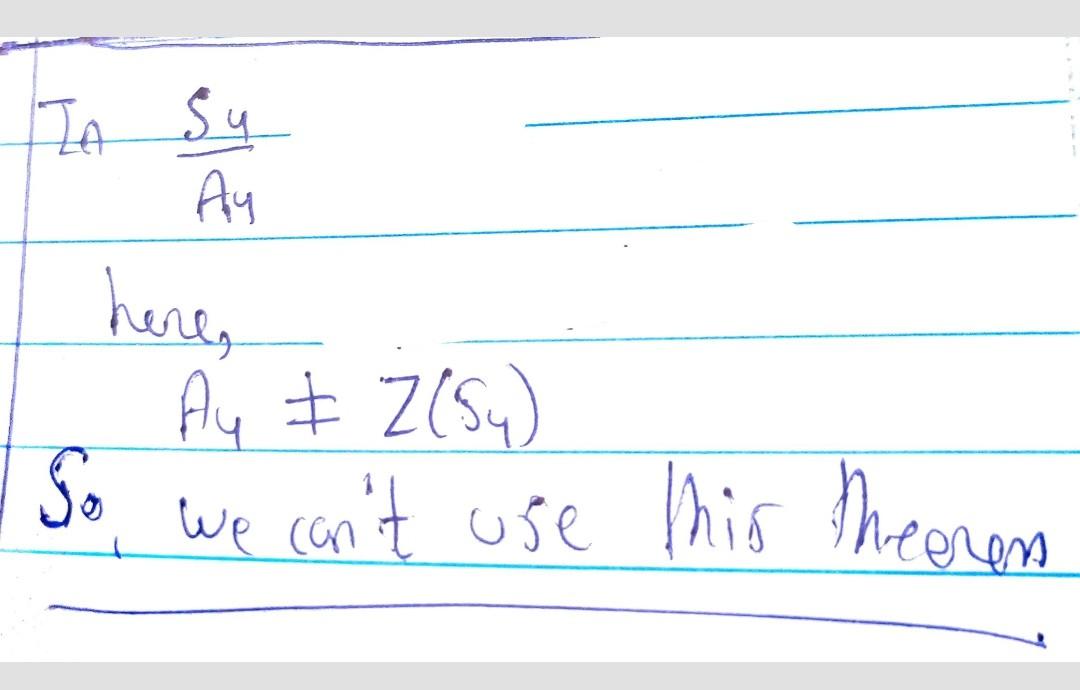 In S4
A4
here,
A4 ≠ Z(S4)
So, we can't use this theorem